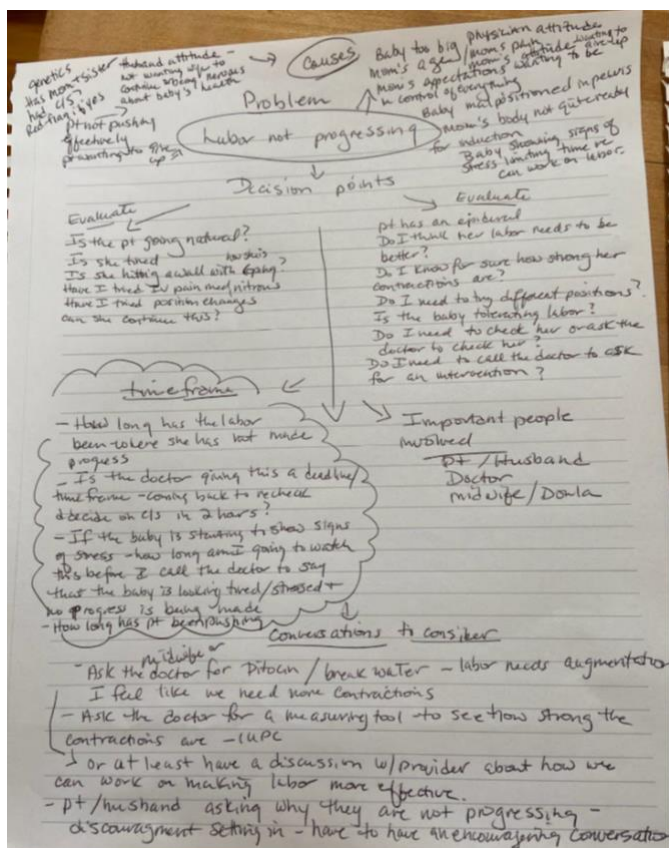 Causes
genetics
Has mom + sister
had C/S?
Red flag if yes
husband attitude -
not wanting wife to
continue w/being nervous
about baby's health
pt not pushing
effectively
or wanting to give
up
Baby too big
physician attitude
Mom's age / mom's
mom's attitude wanting to give up
mom's expectations wanting to be
in control of everything
Baby malpositioned in pelvis
mom's body not quite ready
for induction
Baby showing signs of
stress limiting time we
can work on labor.
Problem
Labor not progressing
Decision points
Evaluate
Is the pt going natural?
Is she tired
Is she hitting a wall with coping?
Have I tried IV pain med/nitrous
Have I tried position changes
can she continue this?
Evaluate
pt has an epidural
Do I think her labor needs to be
better?
Do I know for sure how strong her
contractions are?
Do I need to try different positions?
Is the baby tolerating labor?
Do I need to check her or ask the
doctor to check her?
Do I need to call the doctor to ask
for an intervention?
timeframe
- How long has the labor
been where she has not made
progress
- Is the doctor giving this a deadline/
timeframe - coming back to recheck
& decide on C/S in 2 hours?
- If the baby is starting to show signs
of stress - how long am I going to watch
this before I call the doctor to say
that the baby is looking tired/stressed +
no progress is being made
- How long has pt been pushing
Important people
involved
pt/Husband
Doctor
midwife/Doula
Conversations to consider
midwife or
- Ask the doctor for Pitocin / break water - labor needs augmentation
I feel like we need more contractions
- Ask the doctor for a measuring tool to see how strong the
contractions are - IUPC
or at least have a discussion w/provider about how we
can work on making labor more effective.
- pt/husband asking why they are not progressing -
discouragment setting in - have to have an encouraging conversation